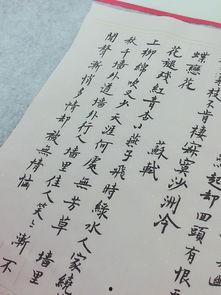 起却回頭有恨
枝不肯棲寂寞沙洲冷
蝶戀花 蘇軾
花褪残红青杏小燕子飛時緑水人家繞
上柳綿吹又少天涯何處無芳草墙里
秋千墙外道墙外行人墙里佳人笑笑漸不
聞聲漸悄多情却被無情惱